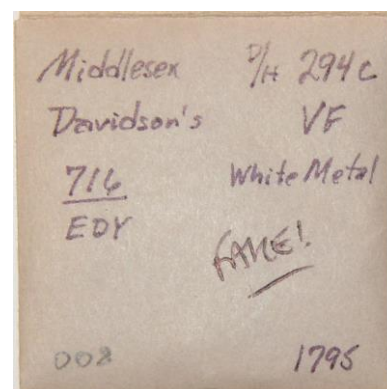 Middlesex D/H 294c
Davidson's VF
716 White Metal
EDY
FAKE!
008 1795